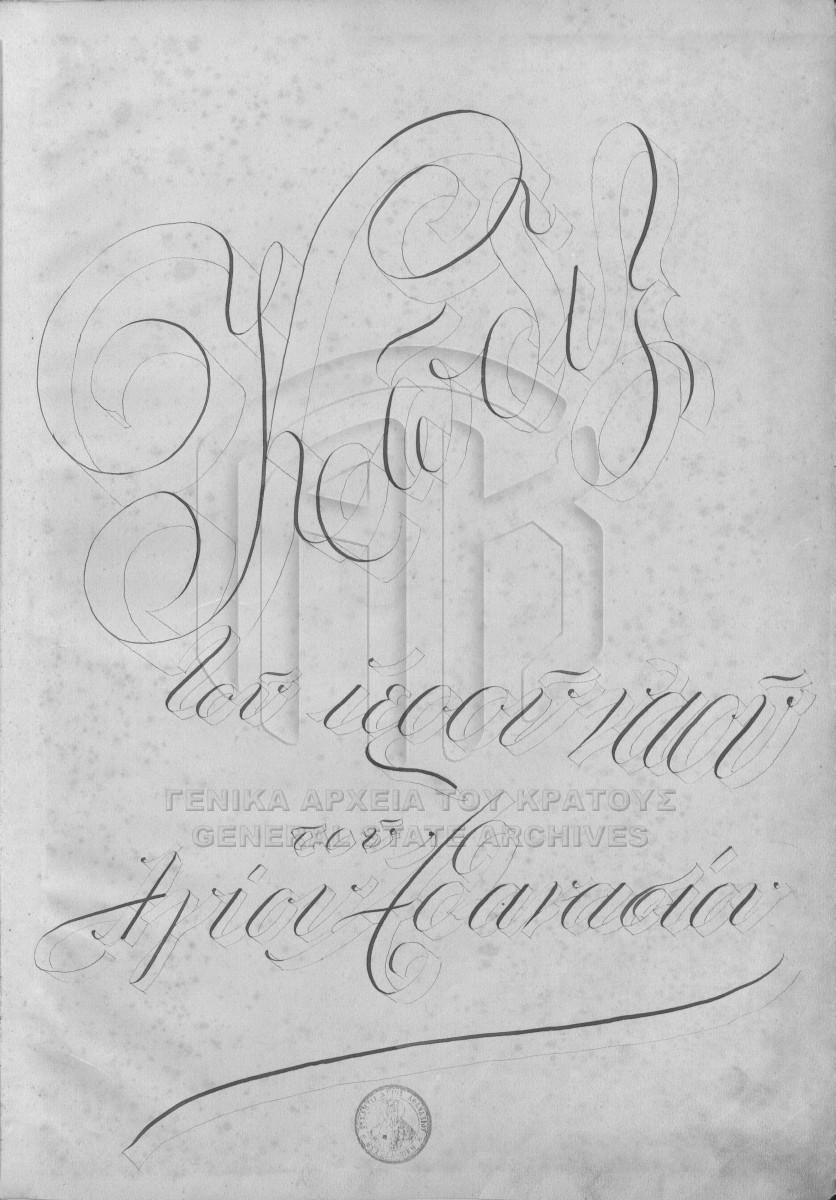 Κῶδιξ
τοῦ ἱεροῦ ναοῦ
ΓΕΝΙΚΑ ΑΡΧΕΙΑ ΤΟΥ ΚΡΑΤΟΥΣ
GENERAL STATE ARCHIVES
τοῦ
Ἁγίου Ἀθανασίου